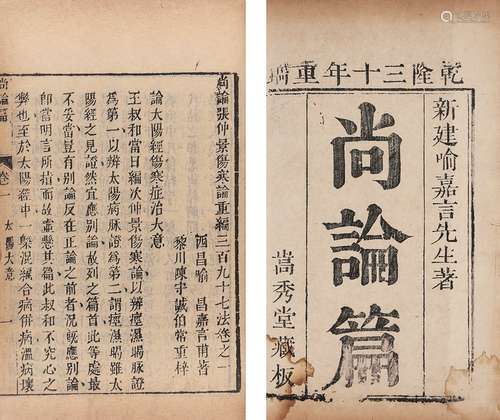 乾隆三十年重鐫
新建喻嘉言先生著
尚論篇
嵩秀堂藏板
尚論張仲景傷寒論重編三百九十七法卷之一
西昌喻 昌嘉言甫著
黎川陳守誠伯常重梓
論太陽經傷寒症治大意
王叔和當日編次仲景傷寒論以辨痙濕暍脉證
為第一以辨太陽病脉證為第二謂痙濕暍雖太
陽經之見證然宜應別論故列之篇首此等處最
不妥當豈有別論反在正論之前者况既應別論
卽當明言所指而故虛懸其篇此叔和不究心之
弊也至於太陽經中一槩混編合病併病溫病壞
尚論篇 卷一 太陽大意 一